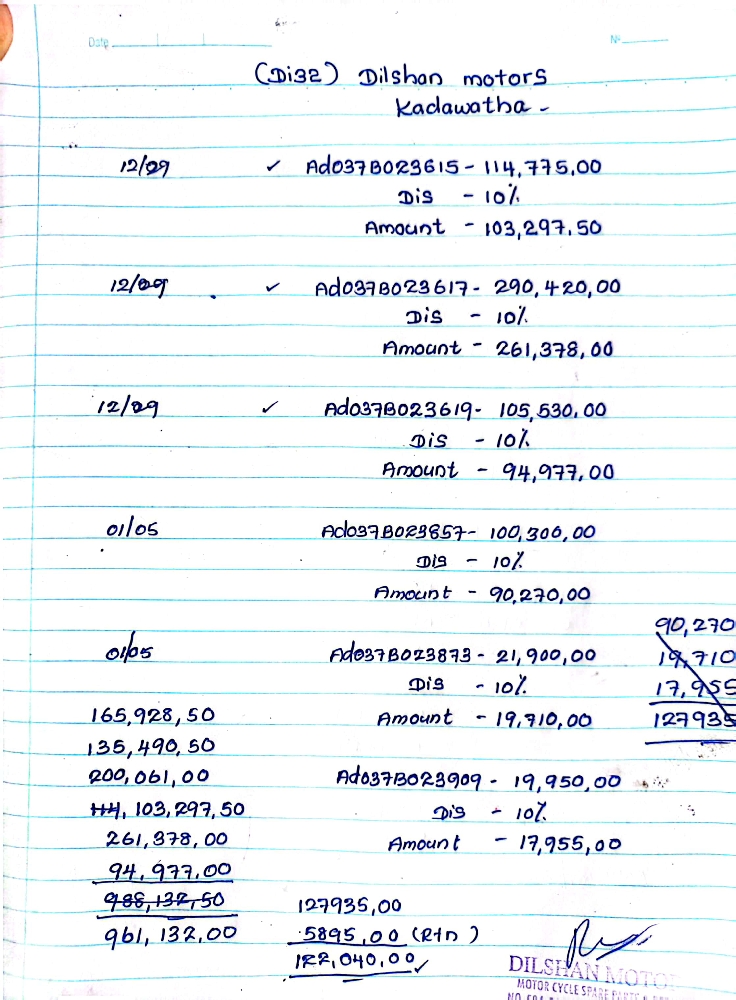 Date
No
(Di32) Dilshan motors
Kadawatha -
12/29 ✓ Ad037B023615 - 114,775,00
Dis - 10%
Amount - 103,297.50
12/29 ✓ Ad037B023617 - 290,420,00
Dis - 10%
Amount - 261,378,00
12/29 ✓ Ad037B023619 - 105,530,00
Dis - 10%
Amount - 94,977,00
01/05 Ad037B023857 - 100,300,00
Dis - 10%
Amount - 90,270,00
01/05 Ad037B023873 - 21,900,00
Dis - 10%
Amount - 19,710,00
90,270
19,710
17,955
127935
Ad037B023909 - 19,950,00
Dis - 10%
Amount - 17,955,00
165,928,50
135,490,50
200,061,00
114, 103,297,50
261,378,00
94,977.00
988,132,50
961,132,00
127935,00
5895,00 (Rtn)
122,040,00 ✓
DILSHAN MOTO
MOTOR CYCLE SPARE PARTS &